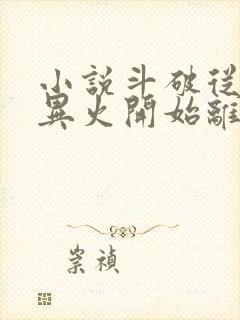 小說斗破從
異火開始離
崇禎